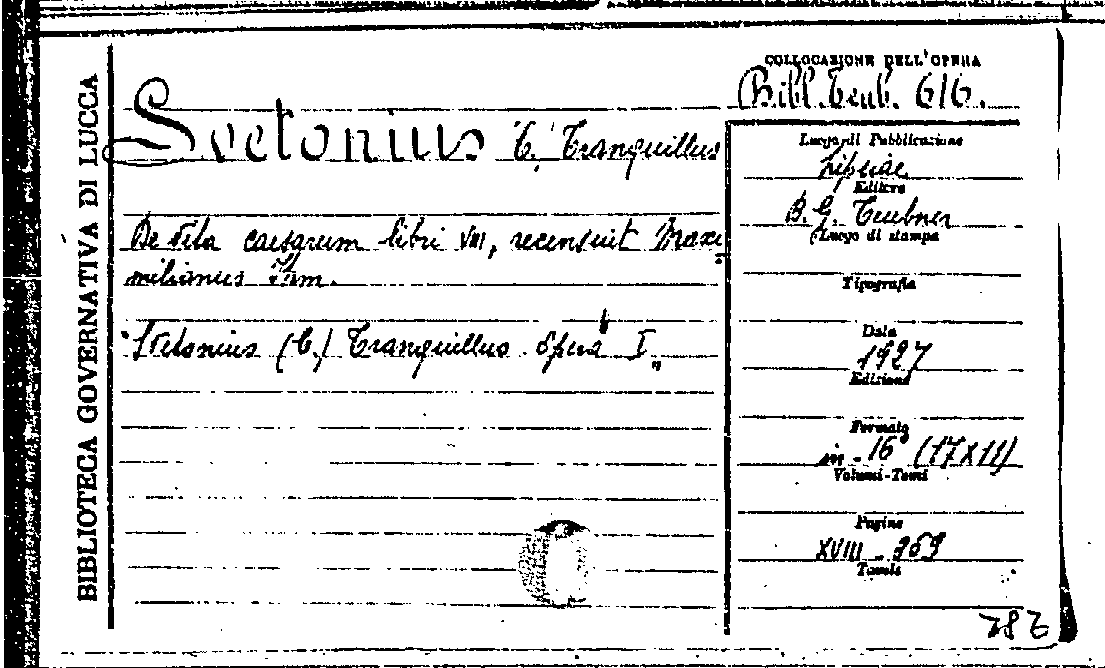 BIBLIOTECA GOVERNATIVA DI LUCCA
COLLOCAZIONE DELL'OPERA
Bibl. Teub. 616.
Svetonius C. Tranquillus
De vita caesarum libri VIII, recensuit Maxi
milianus Ihm.
Svetonius (C.) Tranquillus Opera I„
Luogo di Pubblicazione
Lipsiae
Editore
B. G. Teubner
Luogo di stampa
Tipografia
Data
1927
Edizione
Formato
in-16° (17X11)
Volumi-Tomi
Pagine
XVIII - 359
Tavole